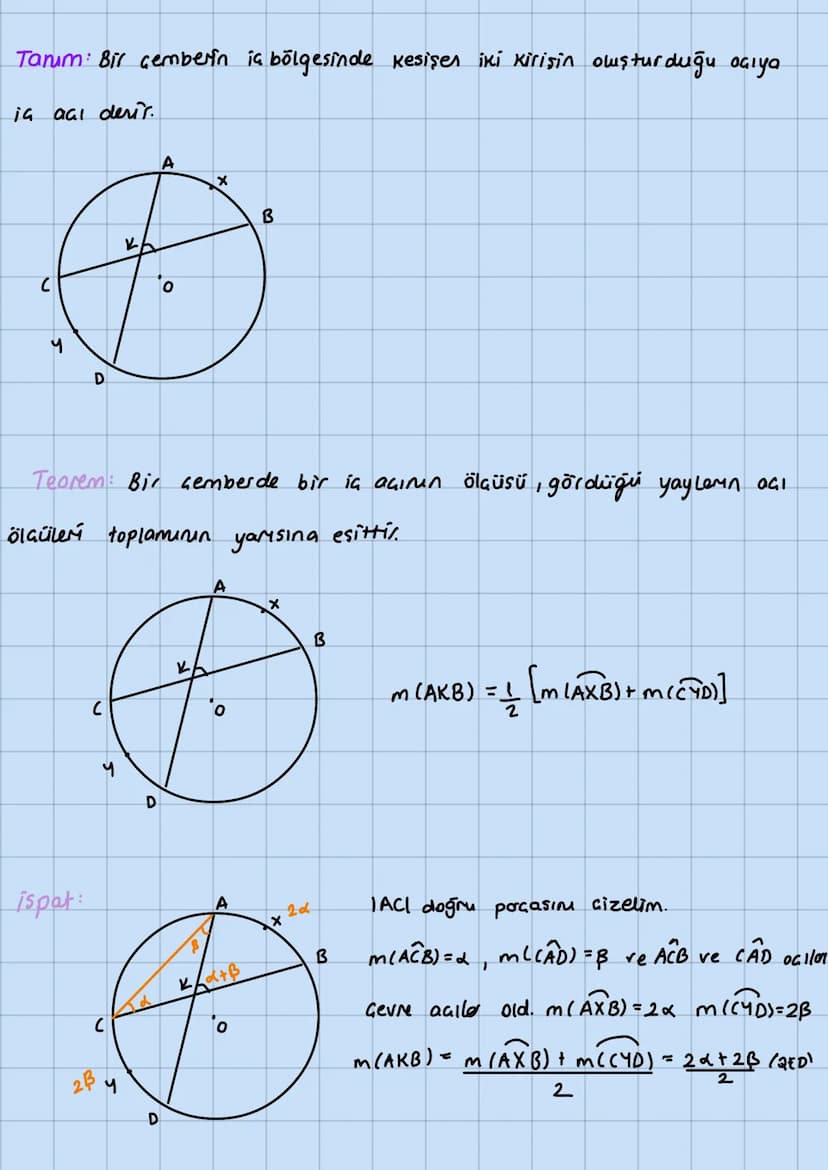 Tanım: Bir çemberin iç bölgesinde kesişen iki kirişin oluşturduğu açıya
iç açı denir.
A
x
B
K
C
O
y
D
Teorem: Bir çemberde bir iç açının ölçüsü, gördüğü yayların açı
ölçüleri toplamının yarısına eşittir.
A
x
B
K
C
O
y
D
m(AKB) = 1/2 [m(AXB) + m(CYD)]
ispat:
A
x 2α
B
β
K α+β
α
C
O
2β y
D
|AC| doğru parçasını çizelim.
m(AĈB)=α , m(CÂD)=β ve AĈB ve CÂD açıları
çevre açılar old. m(AXB)=2α m(CYD)=2β
m(AKB) = m(AXB) + m(CYD) / 2 = 2α+2β / 2 (QED)